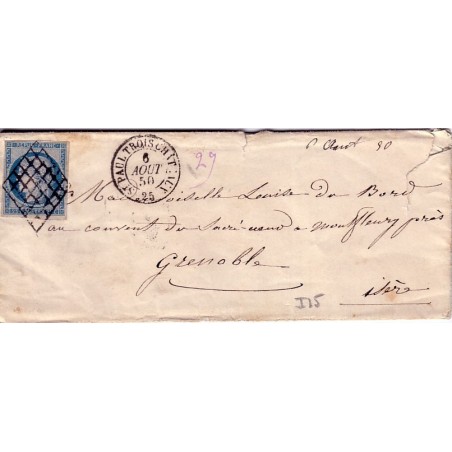 REPUB FRANC
ST PAUL TROIS CHATEAUX
6
AOUT
50
(25)
29
6 Aout 50
Mademoiselle Louise de Bord
au couvent du Sacré-coeur a montfleury près
Grenoble
isère
I15